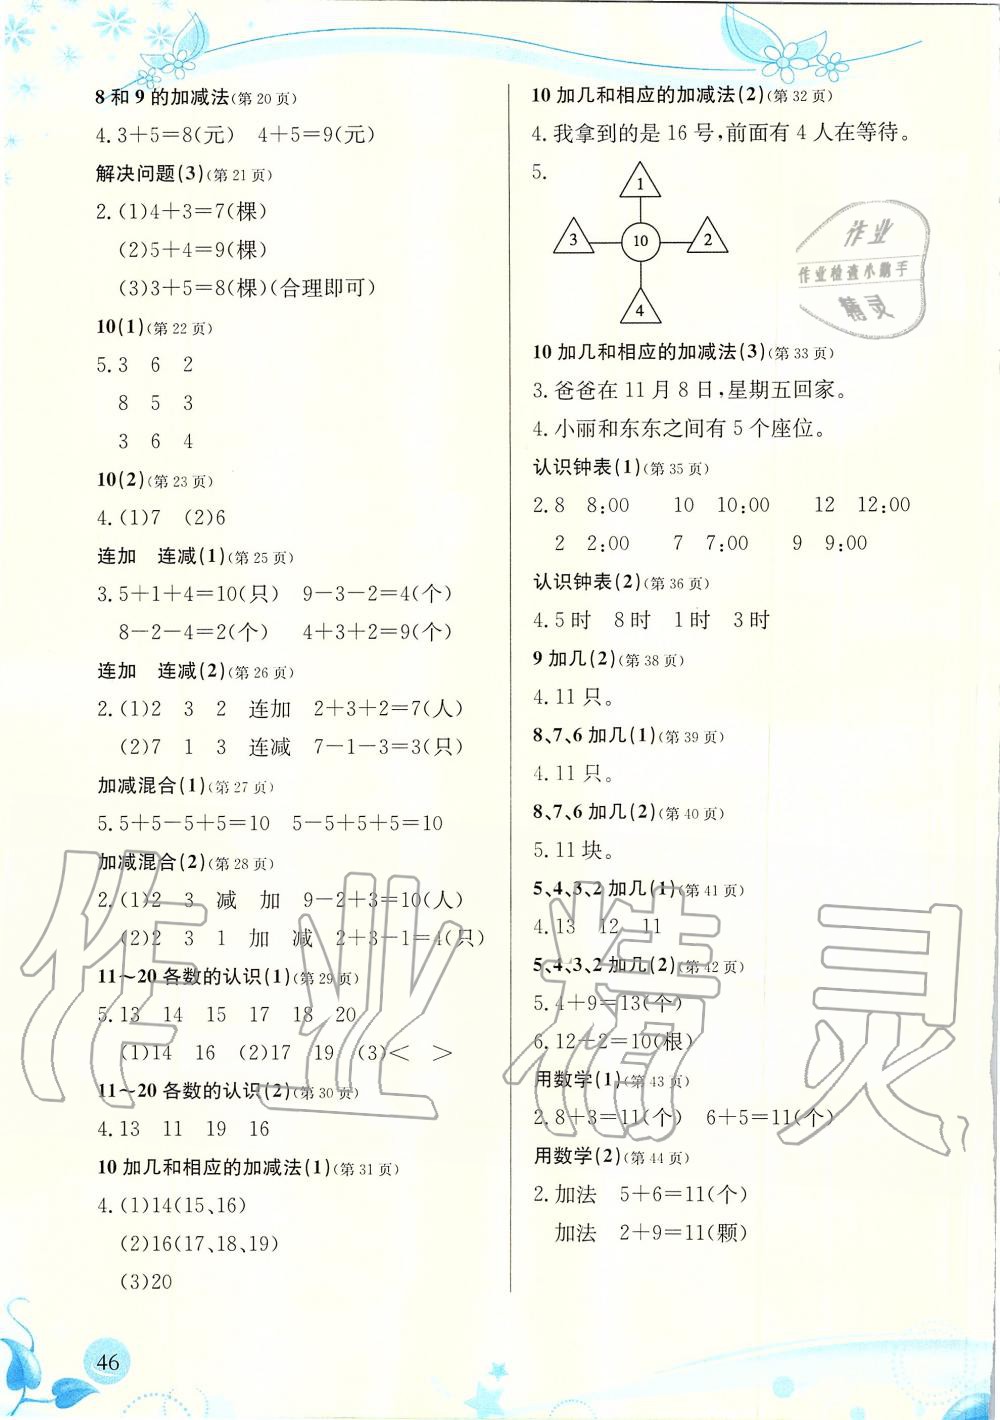 8和9的加减法(第20页)
4.3+5=8(元) 4+5=9(元)
解决问题(3)(第21页)
2.(1)4+3=7(棵)
(2)5+4=9(棵)
(3)3+5=8(棵)(合理即可)
10(1)(第22页)
5.3 6 2
8 5 3
3 6 4
10(2)(第23页)
4.(1)7 (2)6
连加 连减(1)(第25页)
3.5+1+4=10(只) 9-3-2=4(个)
8-2-4=2(个) 4+3+2=9(个)
连加 连减(2)(第26页)
2.(1)2 3 2 连加 2+3+2=7(人)
(2)7 1 3 连减 7-1-3=3(只)
加减混合(1)(第27页)
5.5+5-5+5=10 5-5+5+5=10
加减混合(2)(第28页)
2.(1)2 3 减 加 9-2+3=10(人)
(2)2 3 1 加 减 2+3-1=4(只)
11~20各数的认识(1)(第29页)
5.13 14 15 17 18 20
(1)14 16 (2)17 19 (3)< >
11~20各数的认识(2)(第30页)
4.13 11 19 16
10加几和相应的加减法(1)(第31页)
4.(1)14(15、16)
(2)16(17、18、19)
(3)20
46
10加几和相应的加减法(2)(第32页)
4.我拿到的是16号,前面有4人在等待。
5.
1
3 10 2
4
10加几和相应的加减法(3)(第33页)
3.爸爸在11月8日,星期五回家。
4.小丽和东东之间有5个座位。
认识钟表(1)(第35页)
2.8 8:00 10 10:00 12 12:00
2 2:00 7 7:00 9 9:00
认识钟表(2)(第36页)
4.5时 8时 1时 3时
9加几(2)(第38页)
4.11只。
8、7、6加几(1)(第39页)
4.11只。
8、7、6加几(2)(第40页)
5.11块。
5、4、3、2加几(1)(第41页)
4.13 12 11
5、4、3、2加几(2)(第42页)
5.4+9=13(个)
6.12-2=10(根)
用数学(1)(第43页)
2.8+3=11(个) 6+5=11(个)
用数学(2)(第44页)
2.加法 5+6=11(个)
加法 2+9=11(颗)
作业
作业检查小助手
精灵
作业精灵